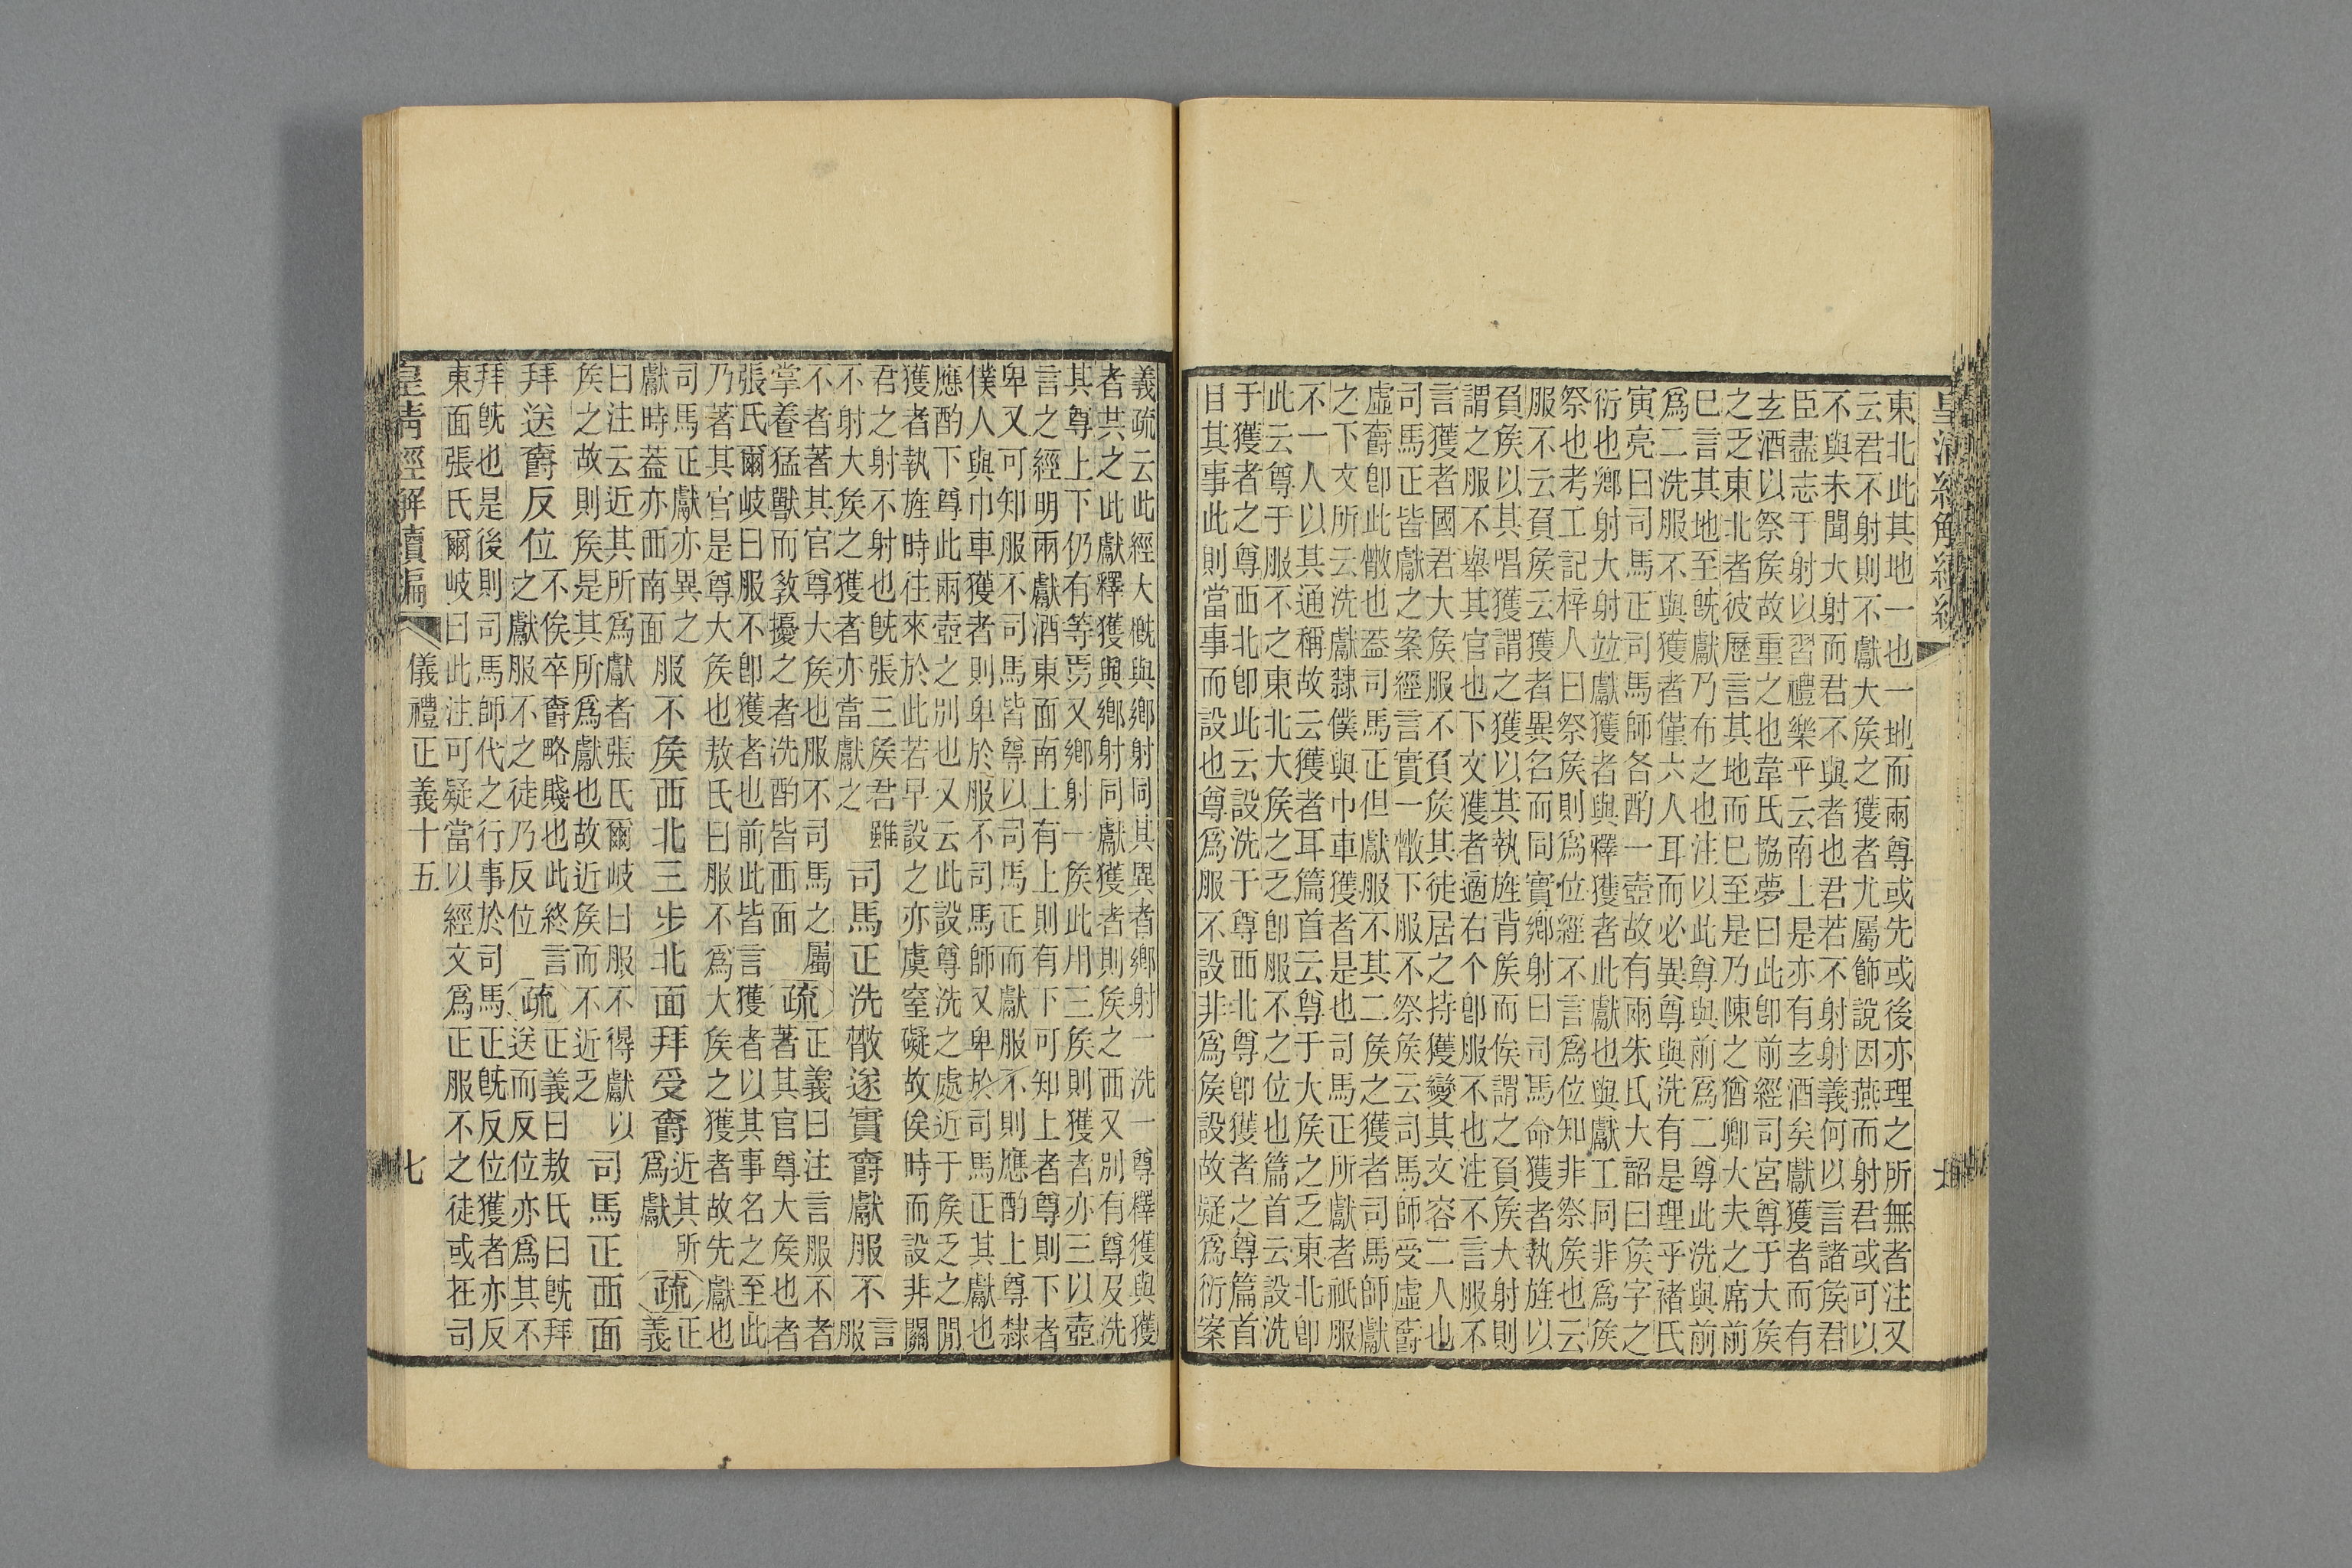 東北此其地一也一地而兩尊或先或後亦理之所無者注又
云君不射則不獻大矦之獲者尤屬飾說因燕而射君或可以
不與未聞大射而君不與者也君若不射射義何以言諸矦君
臣盡志于射以習禮樂平云南上是亦有玄酒矣獻獲者而有
玄酒以祭矦故重之也韋氏協夢曰此卽前經司宮尊于大矦
之乏東北者彼歷言其地而已至是乃陳之猶卿大夫之席前
已言其地至旣獻乃布之也注以此尊與前爲二尊此洗與前
爲二洗服不與獲者僅六人耳而必異尊與洗有是理乎褚氏
寅亮曰司馬正司馬師各酌一壺故有兩朱氏大韶曰矦字之
衍也鄉射大射竝獻獲者與釋獲者此獻也與獻工同非爲矦
祭也考工記梓人曰祭矦則爲位經不言爲位知非祭矦也云
服不云負矦云獲者異名而同實鄉射曰司馬命獲者執旌以
負矦以其唱獲謂之獲以其執旌背矦而俟謂之負矦大射則
謂之服不舉其官也下文獲者適右个卽服不也注不言服不
言獲者國君大矦服不負矦其徒居之持獲變其文容二人也
司馬正皆獻之案經言實一散下服不祭矦云司馬師受虛爵
虛爵卽此散也葢司馬正但獻服不其二矦之獲者司馬師獻
之下文所云洗獻隸僕與巾車獲者是也司馬正所獻者祇服
不一人以其通稱故云獲者耳篇首云尊于大矦之乏東北卽
此云尊于服不之東北大矦之乏卽服不之位也篇首云設洗
于獲者之尊西北卽此云設洗于尊西北尊卽獲者之尊篇首
目其事此則當事而設也尊爲服不設非爲矦設故疑爲衍案
義疏云此經大槪與鄉射同其異者鄉射一洗一尊釋獲與獲
者共之此獻釋獲與鄉射同獻獲者則矦之西又別有尊及洗
其尊上下仍有等焉又鄉射一矦此用三矦則獲者亦三以壺
言之經明兩獻酒東面南上有上則有下可知上者尊則下者
卑又可知服不司馬皆尊以司馬正而獻服不則應酌上尊隸
僕人與巾車獲者則卑於服不司馬師又卑於司馬正其獻也
應酌下尊此兩壺之別也又云此設尊洗之處近于矦乏之閒
獲者執旌時往來於此若早設之亦虞窒礙故俟時而設非闗
君之射不射也旣張三矦君雖
不射大矦之獲者亦當獻之
司馬正洗散遂實爵獻服不
言服
不者著其官尊大矦也服不司馬之屬
掌養猛獸而敎擾之者洗酌皆西面
疏
正義曰注言服不者
著其官尊大矦也者
張氏爾岐曰服不卽獲者也前此皆言獲者以其事名之至此
乃著其官是尊大矦也敖氏曰服不爲大矦之獲者故先獻也
司馬正獻亦異之
獻時葢亦西南面
服不矦西北三步北面拜受爵
近其所
爲獻
疏
正義
曰注云近其所爲獻者張氏爾岐曰服不得獻以
矦之故則矦是其所爲獻也故近矦而不近乏
司馬正西面
拜送爵反位
不俟卒爵略賤也此終言
之獻服不之徒乃反位
疏
正義曰敖氏曰旣拜
送而反位亦爲其不
拜旣也是後則司馬師代之行事於司馬正旣反位獲者亦反
東面張氏爾岐曰此注可疑當以經文爲正服不之徒或在司
皇淸經解續編
儀禮正義十五
七